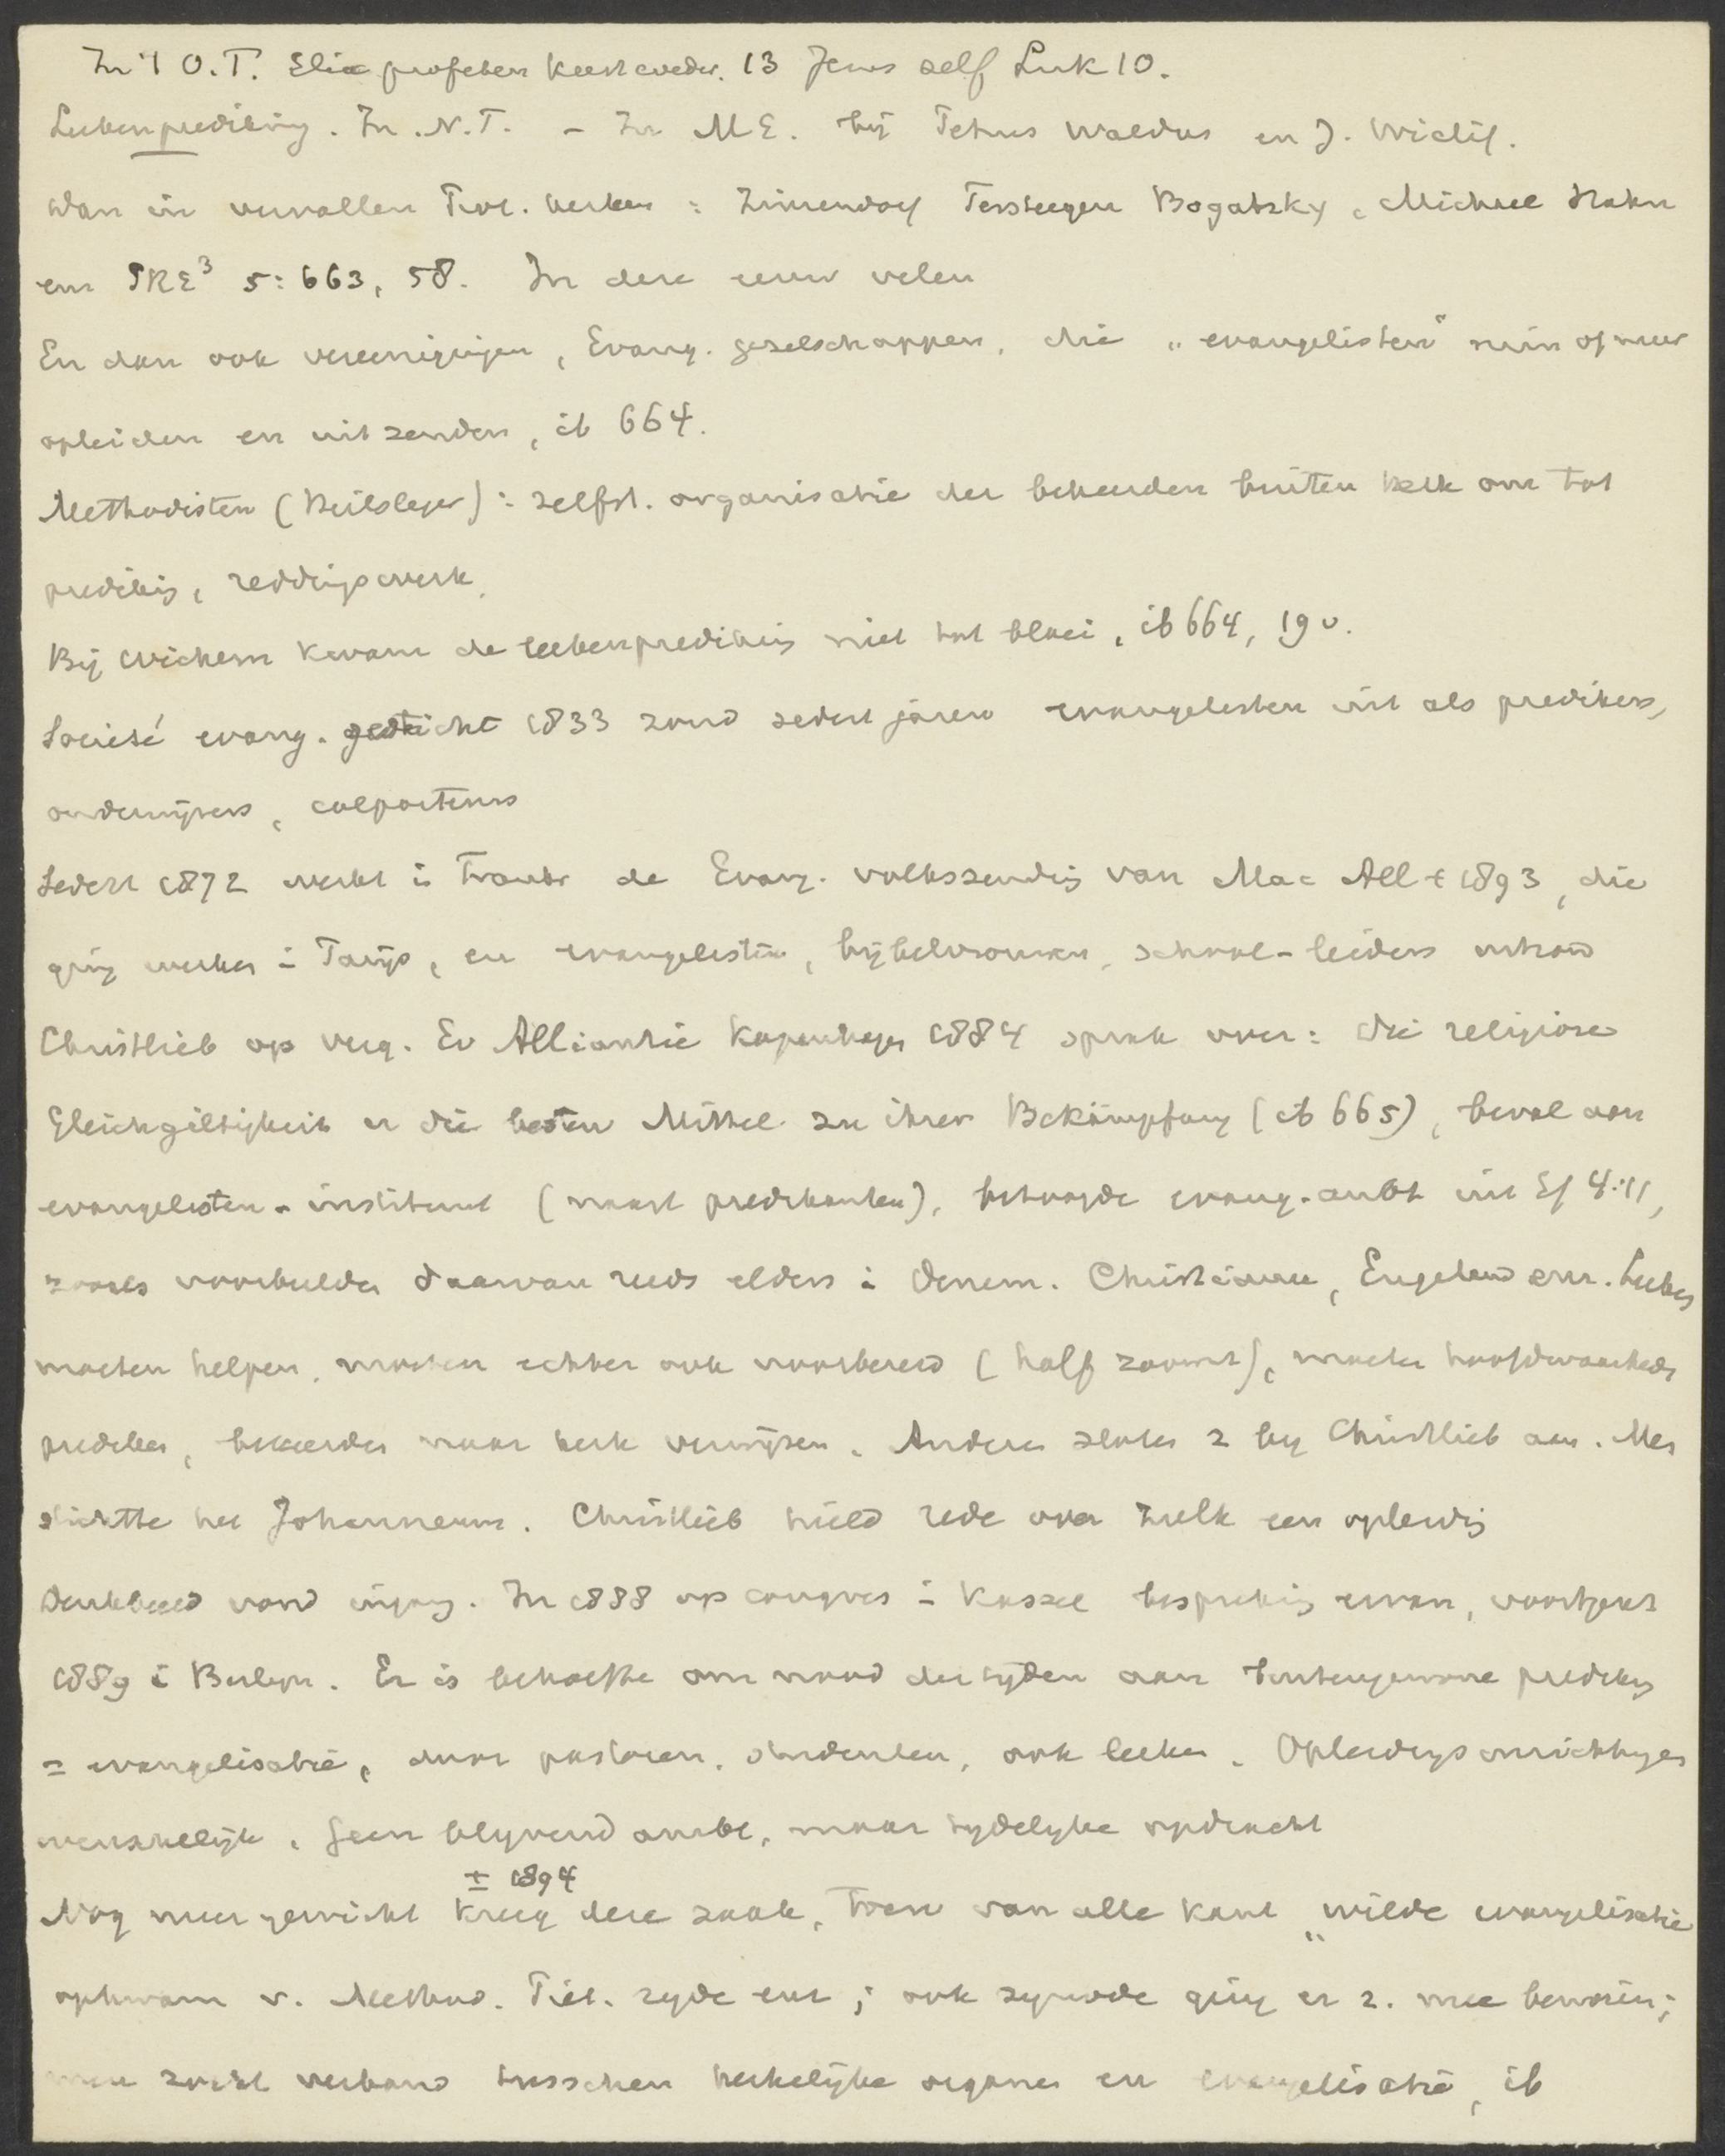 In 't O.T. Elia profeten Luk 10.
Leekenprediking. In N.T. – In M.E. bij Petrus Waldus en J. Wiclif.
dan in vervallen Prot. kerken: Zinzendorf Tersteegen Bogatzky, Michael Hahn
enz PRE³ 5:663, 58. In deze eeuw velen
En dan ook vereenigingen, Evang. gezelschappen, die „evangelisten" min of meer
opleiden en uitzenden, ib 664.
Methodisten (Heilsleger): zelfst. organisatie der bekeerden buiten kerk om tot
prediking, reddingswerk.
Bij Wichern kwam de leekenprediking niet tot bloei, ib 664, 19 v.
Société evang. gesticht 1833 zond sedert jaren evangelisten uit als predikers,
onderwijzers, colporteurs
Sedert 1872 werkt i Frankr de Evang. volkszending van Mac All † 1893, die
ging werken i Parijs, en evangelisten, bijbelvrouwen, school-leiders
Christlieb op verg. Ev Alliantie Kopenhagen 1884 sprak over: die religiöse
Gleichgiltigkeit u die besten Mittel zu ihrer Bekämpfung (ib 665), beval aan
evangelisten-instituut (naast predikanten), betoogde evang.-ambt uit Ef 4:11,
zooals voorbeelden daarvan reeds elders i Denem. Christiania, Engeland enz. Leeken
moeten helpen, moeten echter ook voorbereid (half zoomin), moeten hoofdwaarheden
prediken, bekeerden naar kerk verwijzen. Anderen sloten z bij Christlieb aan. Men
stichtte het Johanneum. Christlieb hield rede over zulk een opleiding
Denkbeeld vond ingang. In 1888 op congres i Kassel bespreking ervan, voortgezet
1889 i Berlijn. Er is behoefte om nood der tijden aan buitengewone prediking
= evangelisatie, door pastoren, studenten, ook leeken. Opleidingsinrichtingen
wenschelijk. Geen blijvend ambt, maar tijdelijke opdracht
± 1894
Nog meer gewicht kreeg deze zaak, toen van alle kant „wilde evangelisatie
opkwam v. Method. Piët. zijde enz; ook synode ging er z. mee bemoeien;
men zocht verband tusschen kerkelijke organen en evangelisatie, ib